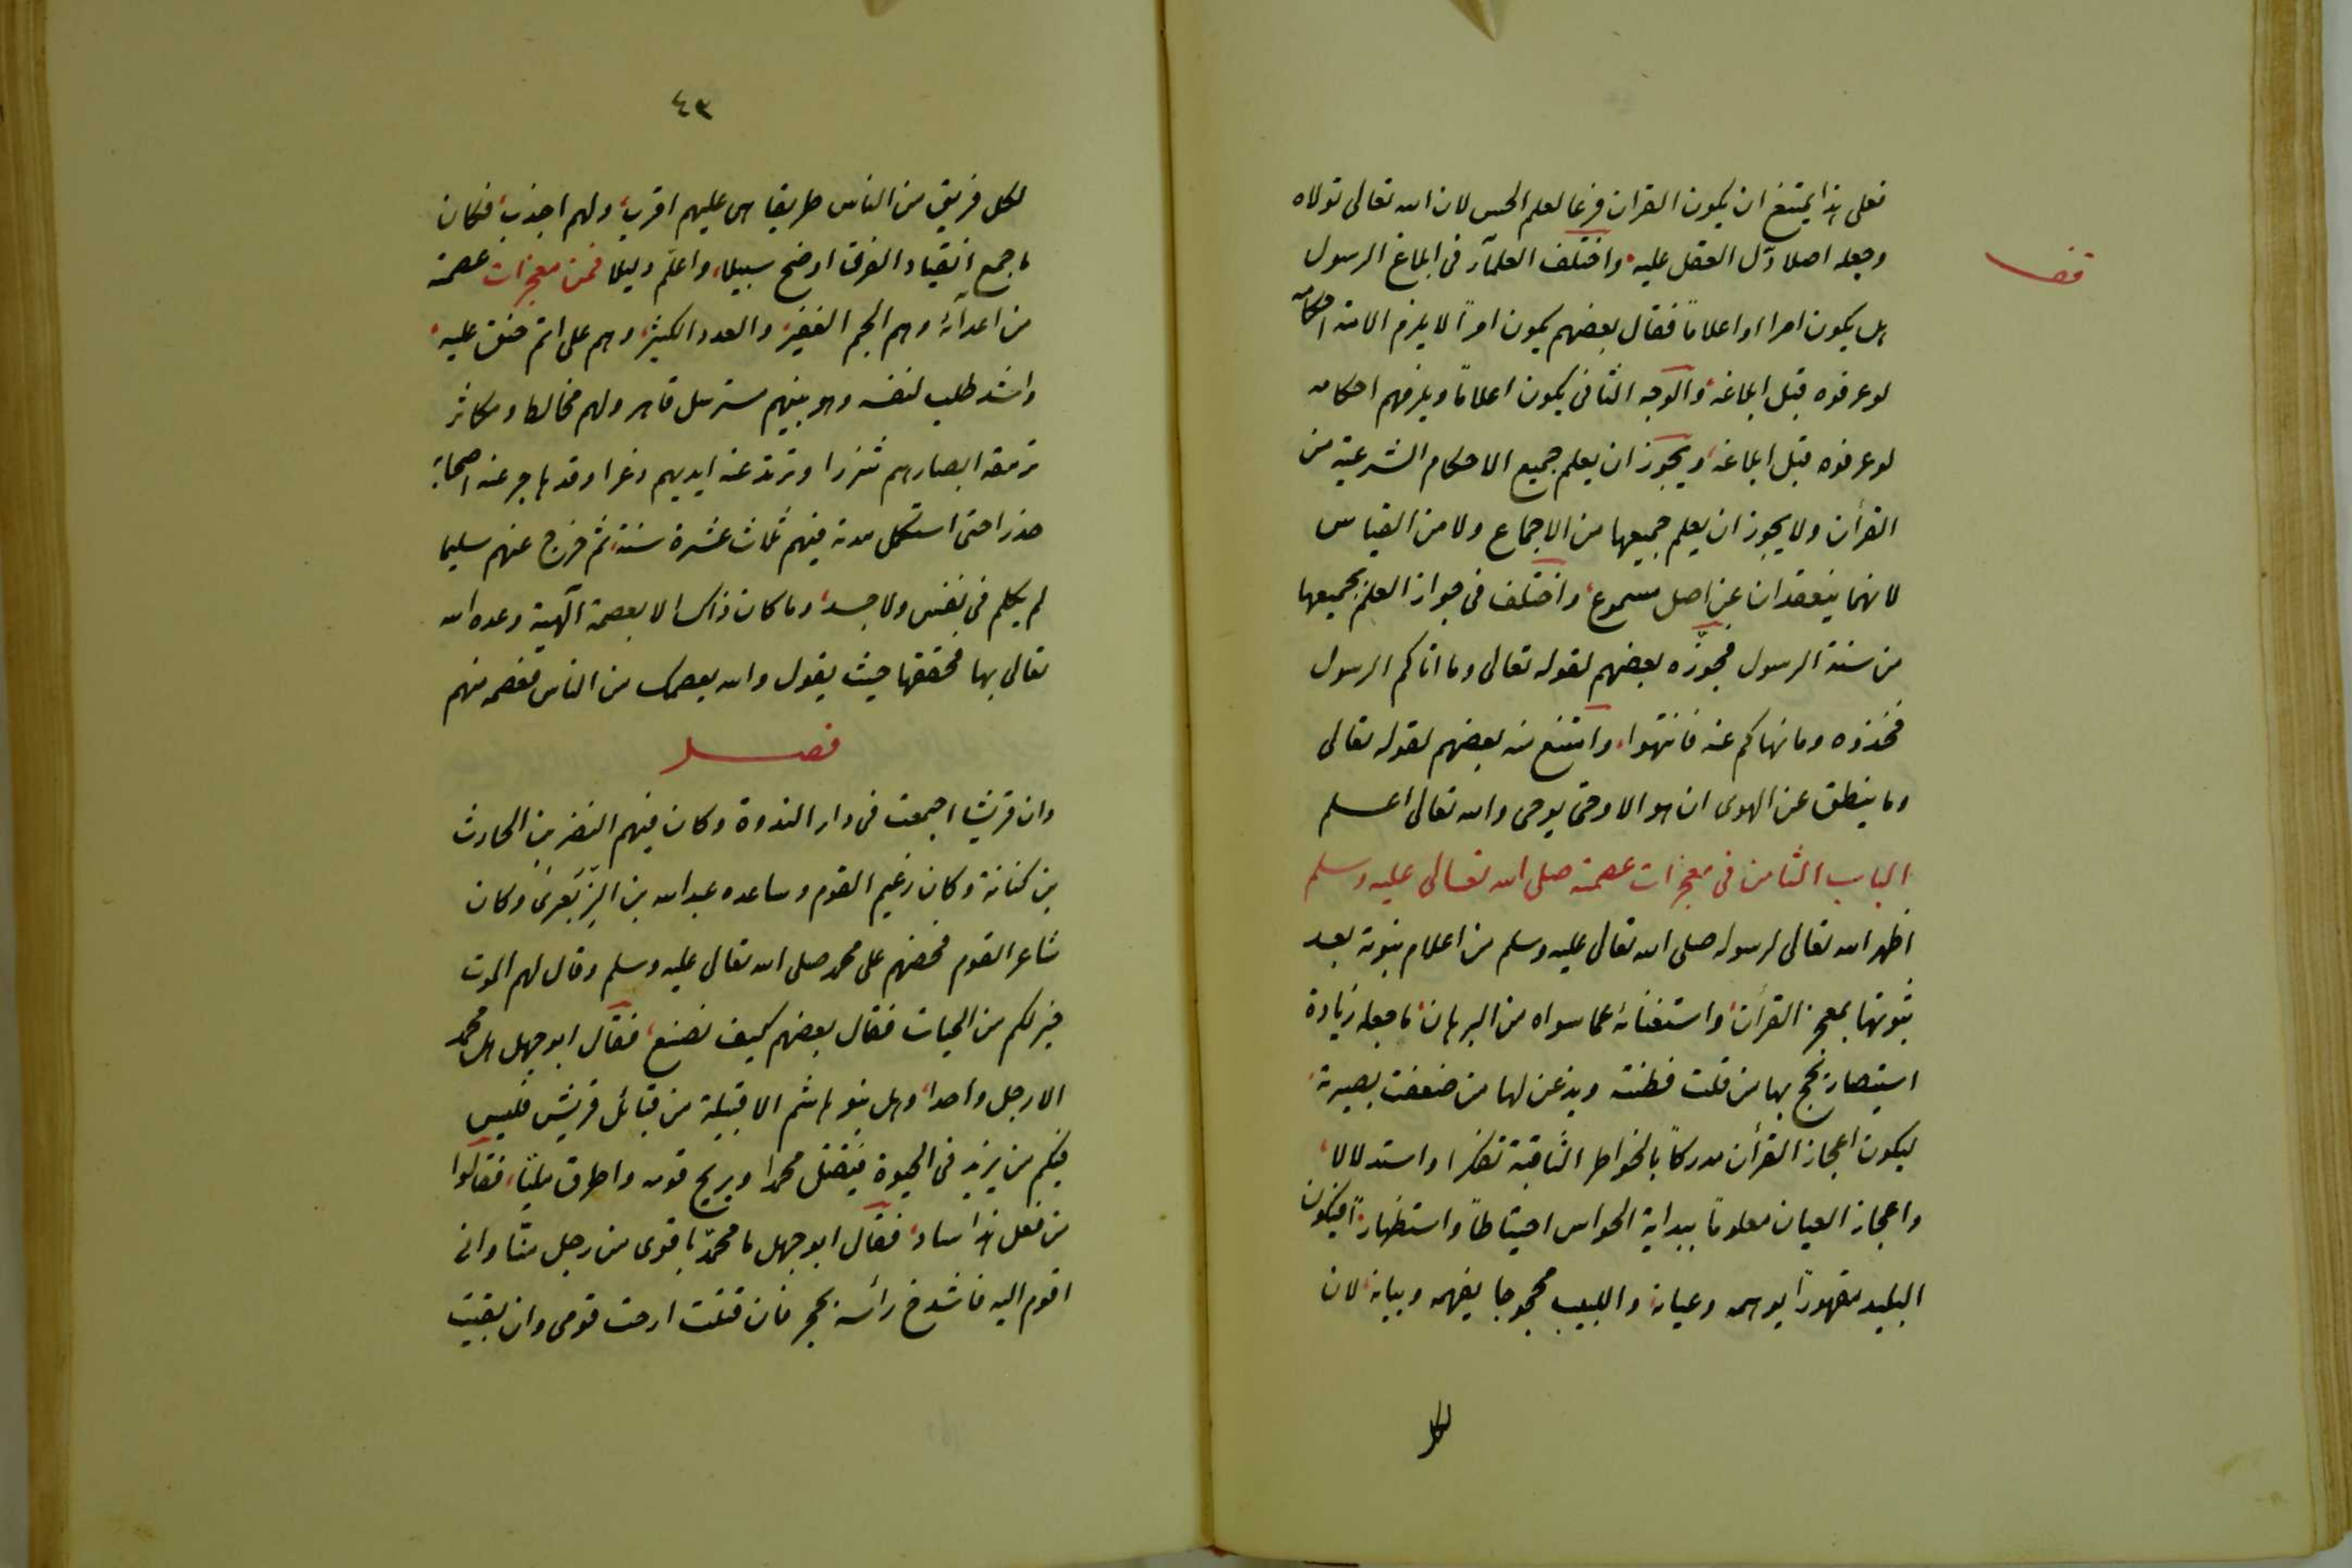 فعلى هذا يمتنع ان يكون القران فرعا لعلم الحس لان الله تعالى تولاه
فصل
وجعله اصلا دل العقل عليه واختلف العلمآء فى ابلاغ الرسول
هل يكون امرا او اعلاماً فقال بعضهم يكون امراً لا يلزم الامة احكامه
لو عرفوه قبل ابلاغه والوجه الثانى يكون اعلاماً ويلزمهم احكامه
لو عرفوه قبل ابلاغه ويجوز ان يعلم جميع الاحكام الشرعية من
القرأن ولا يجوز ان يعلم جميعها من الاجماع ولا من القياس
لانهما ينعقدان عن اصل مسموع واختلف فى جواز العلم بجميعها
من سنة الرسول فجوّزه بعضهم لقوله تعالى وما اتاكم الرسول
فخذوه وما نهاكم عنه فانتهوا وامتنع منه بعضهم لقوله تعالى
وما ينطق عن الهوى ان هو الا وحى يوحى والله تعالى اعلم
الباب الثامن فى معجزات عصمته صلى الله تعالى عليه وسلم
اظهر الله تعالى لرسوله صلى الله تعالى عليه وسلم من اعلام نبوته بعد
ثبوتها بمعجز القرأن واستغنائه عما سواه من البرهان ما جعله زيادة
استبصار يحج بها من قلت فطنته ويذعن لها من ضعفت بصيرته
ليكون اعجاز القرأن مدركاً بالخواطر الثاقبة تفكرا واستدلالا
واعجاز العيان معلوماً ببداية الحواس احتياطاً واستظهاراً فيكون
البليد مقهوراً بوهمه وعيانه واللبيب محجوجا بفهمه وبيانه لان
لكل
٤٣
لكل فريق من الناس طريقا هى عليهم اقرب ولهم اجذب فكان
ما جمع انقياد الفرق اوضح سبيلا واعلّم دليلا فمن معجزات عصمته
من اعدآئه وهم الجم الغفير والعدد الكثير وهم على اتم حنق عليه
واشد طلب لنفسه وهو بينهم مسترسل قاهر ولهم مخالط ومكاثر
ترمقه ابصارهم شزرا وترتد عنه ايديهم ذعرا وقد هاجر عنه اصحابه
حذرا حتى استكمل مدته فيهم ثلاث عشرة سنة ثم خرج عنهم سليما
لم يكلم فى نفس ولا جسد وما كان ذاك الا بعصمة آلهية وعده الله
تعالى بها فحققها حيث يقول والله يعصمك من الناس فعصمه منهم
فصل
وان قريشا اجمعت فى دار الندوة وكان فيهم النضر بن الحارث
بن كنانة وكان زعيم القوم وساعده عبد الله بن الزّبَعرى وكان
شاعر القوم فحضهم على محمد صلى الله تعالى عليه وسلم وقال لهم الموت
خير لكم من الحيات فقال بعضهم كيف نصنع فقال ابو جهل هل محمد
الا رجل واحد وهل بنو هاشم الا قبيلة من قبائل قريش فليس
فيكم من يزهد فى الحيوة فيقتل محمدا ويريح قومه واطرق مليّا فقالوا
من فعل هذا ساد فقال ابو جهل ما محمدّ باقوى من رجل منّا وانى
اقوم اليه فاشدخ رأسه بحجر فان قتلت ارحت قومى وان بقيت